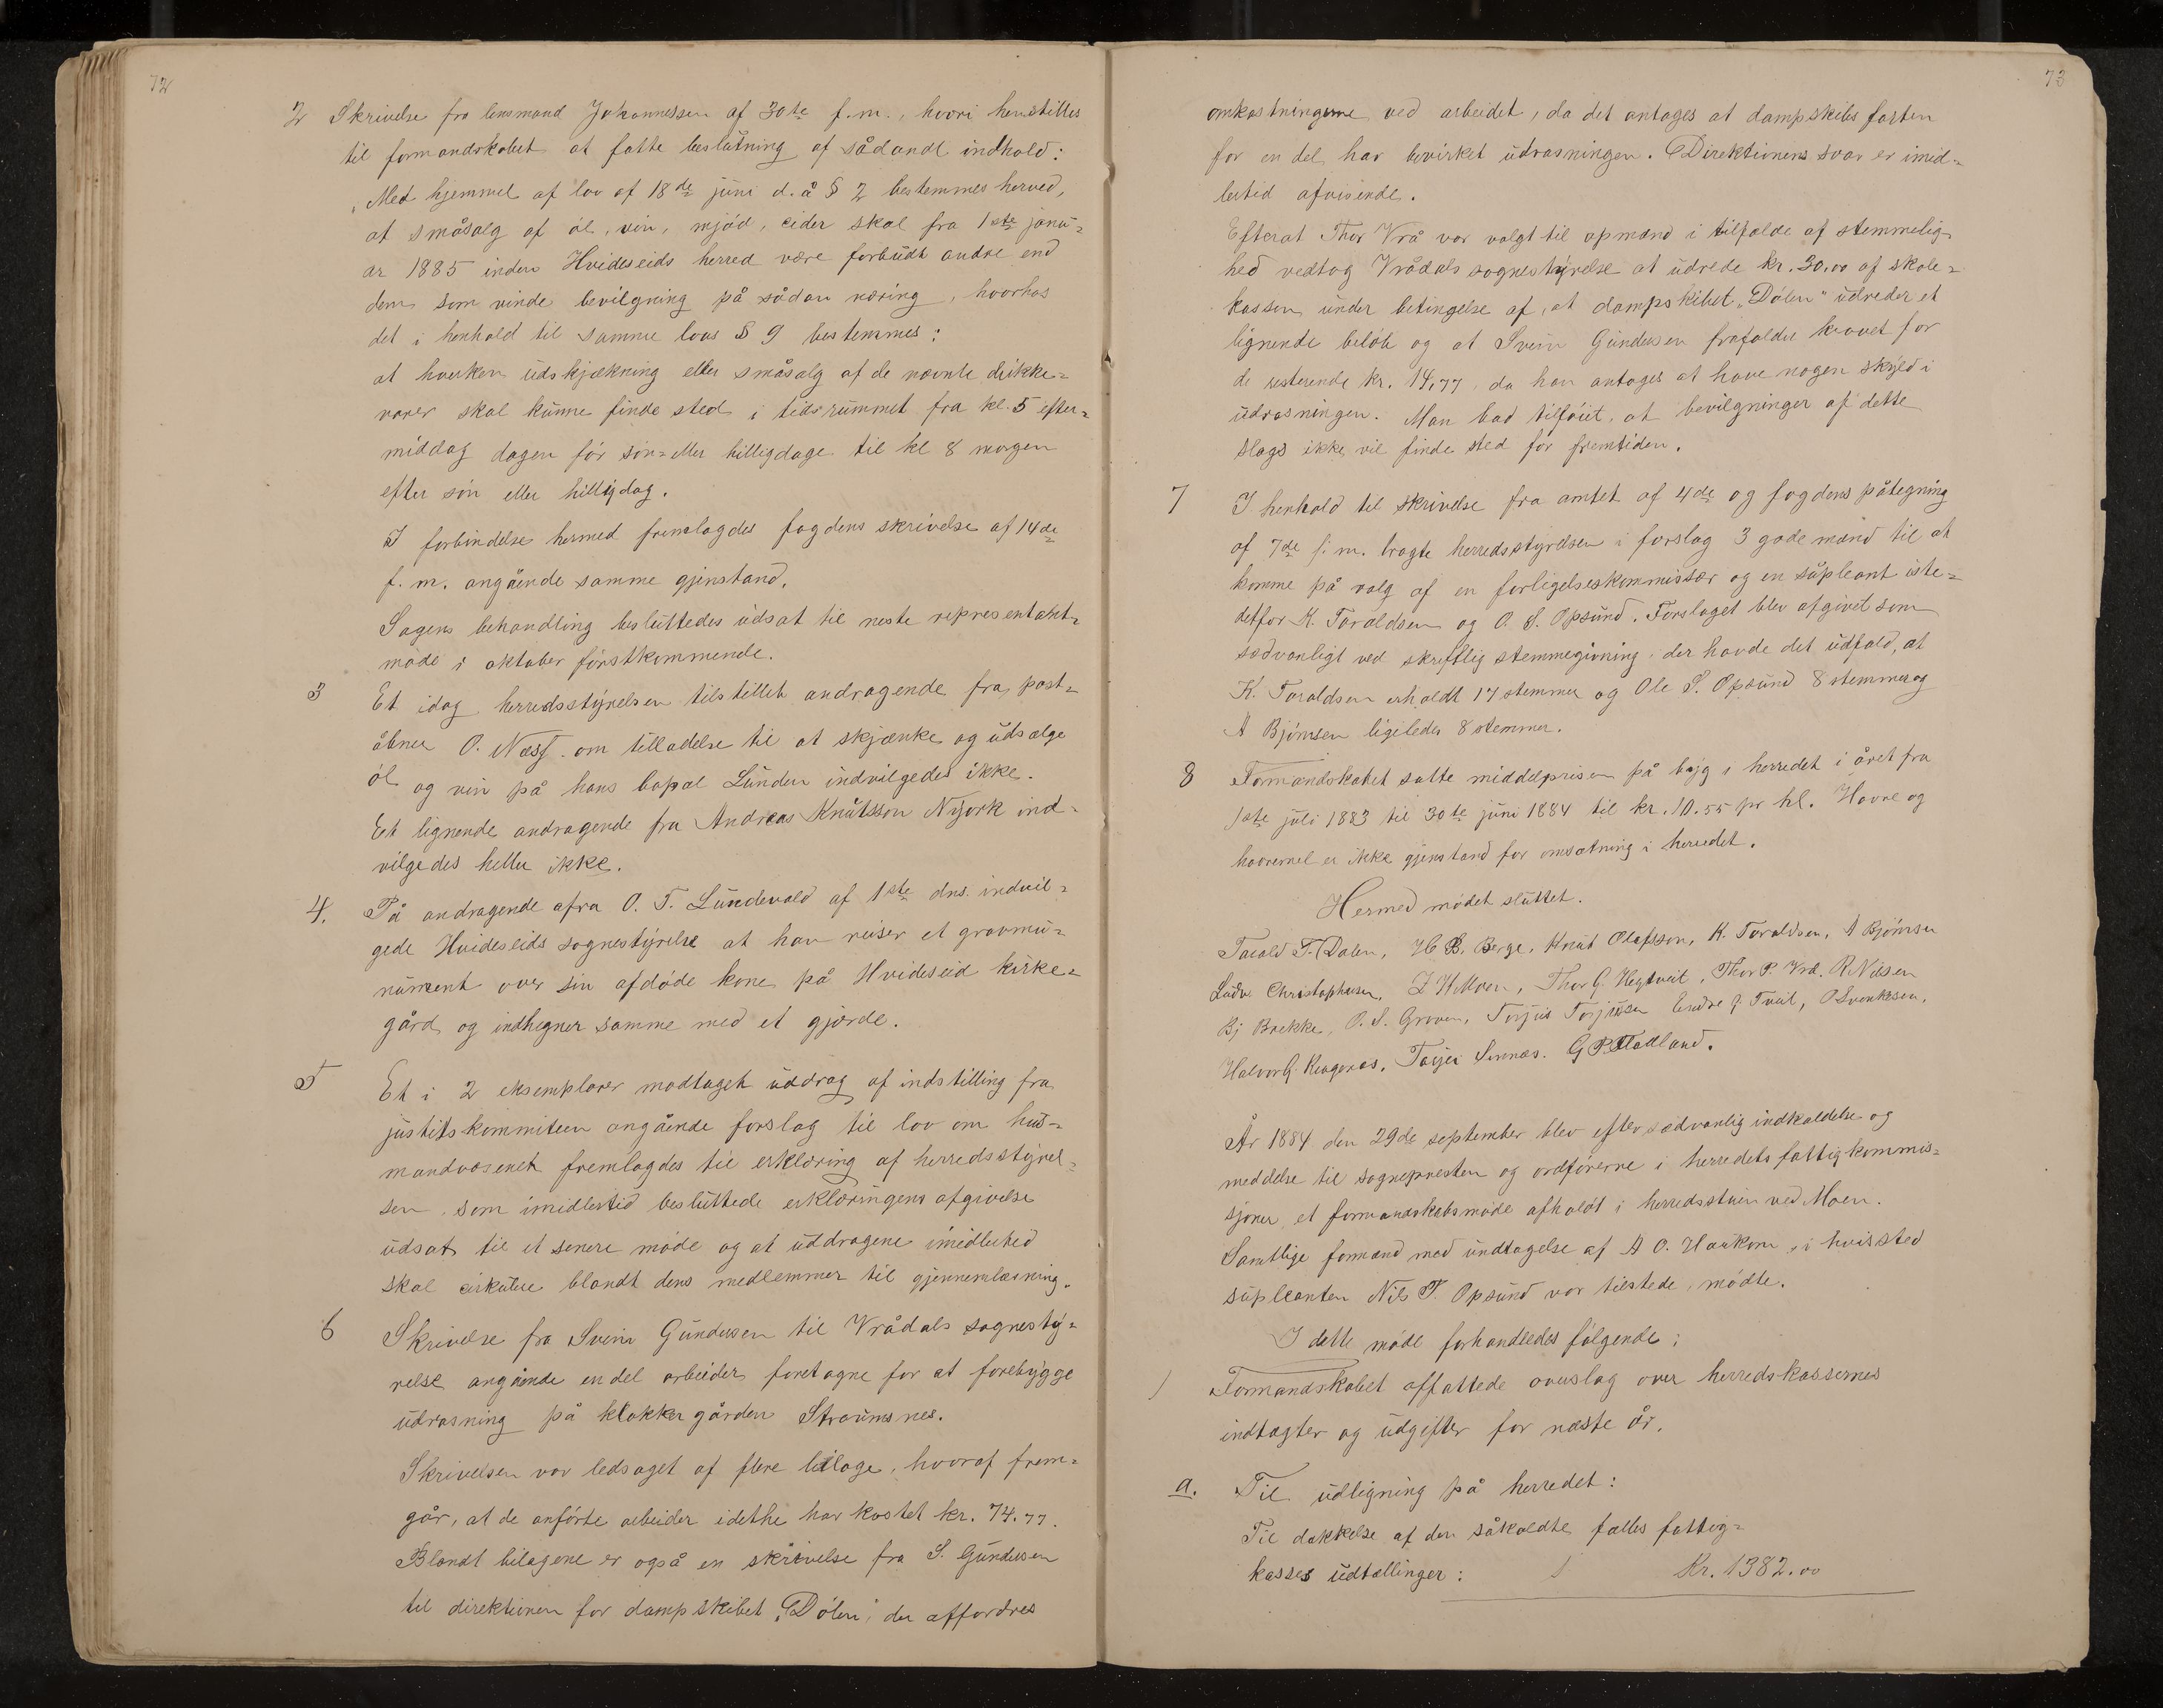 72
2 Skrivelse fra lensmand Johannessen af 30te f.m., hvori henstilles
til formandskabet at fatte beslutning af sådandt indhold:
„Med hjemmel af lov af 18de juni d.å § 2 bestemmes herved,
at småsalg af øl, vin, mjød, cider skal fra 1ste janu=
ar 1885 inden Hvideseids herred være forbudt andre end
dem som vinde bevilgning på sådan næring, hvorhos
det i henhold til samme lovs § 9 bestemmes:
at hverken udskjækning eller småsalg af de nævnte drikke=
varer skal kunne finde sted i tidsrummet fra kl. 5 efter=
middag dagen før søn= eller helligdage til kl 8 morgen
efter søn eller helligdag.
I forbindelse hermed fremlagdes fogdens skrivelse af 14de
f.m. angående samme gjenstand.
Sagens behandling besluttedes udsat til neste representant=
møde i oktober førstkommende.
3 Et idag herredsstyrelsen tilstillet andragende fra post=
åbner O. Næss om tilladelse til at skjænke og udsælge
øl og vin på hans bopæl Lunden indvilgedes ikke.
Et lignende andragende fra Andreas Knutsson Nyork ind=
vilgedes heller ikke.
4. På andragende afra O. T. Lundevald af 1ste dns. indvil=
gede Hvideseids sognestyrelse at han reiser et gravmu=
nument over sin afdøde kone på Hvideseid kirke=
gård og indhegner samme med et gjærde.
5 Et i 2 eksemplarer modtaget uddrag af indstilling fra
justitskommiteen angående forslag til lov om hus=
mandvæsenet fremlagdes til erklæring af herredsstyrel=
sen, som imidlertid besluttede erklæringens afgivelse
udsat til et senere møde og at uddragene imidlertid
skal cirkulere blandt dens medlemmer til gjennemlæsning.
6 Skrivelse fra Svein Gundersen til Vrådals sognesty=
relse angående en del arbeider foretagne for at forebygge
udrasning på klokkergården Straumsnes.
Skrivelsen var ledsaget af flere bilage, hvoraf frem=
går, at de anførte arbeider idethe har kostet kr. 74.77.
Blandt bilagene er også en skrivelse fra S. Gundersen
til direktionen for dampskibet „Dølen", der affordres
73
omkostningerne ved arbeidet, da det antages at dampskibsfarten
for en del har bevirket udrasningen. Direktionens svar er imid=
lertid afvisende.
Efterat Thor Vrå var valgt til opmand i tilfælde af stemmelig
hed vedtog Vrådals sognestyrelse at udrede kr. 30.00 af skole=
kassen under betingelse af, at dampskibet „Dølen" udreder et
lignende beløb og at Svein Gundersen frafalder kravet for
de resterende kr. 14,77, da han antages at have nogen skyld i
udrasningen. Man bad tilføiet, at bevilgninger af dette
slags ikke vil finde sted for fremtiden.
7 I henhold til skrivelse fra amtet af 4de og fogdens påtegning
af 7de f.m. bragte herredsstyrelsen i forslag 3 gode mænd til at
komme på valg af en forligelseskommissær og en supleant iste=
detfor K. Taraldsen og O. S. Opsund. Forslaget blev afgivet som
sædvanligt ved skriftlig stemmegivning, der havde det udfald, at
K. Taraldsen erholdt 17 stemmer og Ole S. Opsund 8 stemmer og
A Bjørnsen ligeledes 8 stemmer.
8 Formandskabet satte middelprisen på byg i herredet i året fra
1ste juli 1883 til 30te juni 1884 til kr. 10.55 pr hl. Havre og
havremel er ikke gjenstand for omsætning i herredet.
Hermed mødet sluttet.
Tarald T. Dalen, H B. Berge, Knut Olafsson, K. Taraldsen, A Bjørnsen
Ludv. Christophersen, Thor G. Heggtveit, Thor P. Vrå. R Nilsen
Bj Brekke, O. S. Groven, Torjus Torjussen Endre G. Tveit, O Svenkesen,
Halvor G. Kragenæs, Tarjei Sinnæs. G P Flatland.
År 1884 den 29de september blev efter sædvanlig indkaldelse og
meddelse til sognepresten og ordførerne i herredets fattigkommis=
sjoner et formandskabsmøde afholdt i herredsstuen ved Moen.
Samtlige formænd med undtagelse af A O. Haukom, i hvis sted
supleanten Nils T. Opsund var tilstede, mødte.
I dette møde forhandledes følgende:
1 Formandskabet affattede overslag over herredskassernes
indtægter og udgifter for næste år.
a. Til udligning på herredet:
Til dækkelse af den såkaldte fælles fattig=
kasses udtællinger: Kr. 1382.00